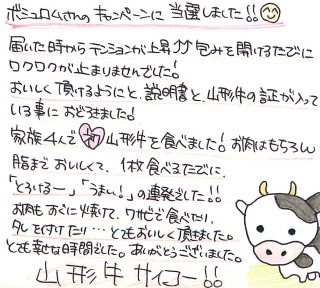 ボシュロムさんのキャンペーンに当選しました!!
届いた時からテンションが上昇⇈包みを開けるたびに
ワクワクが止まりませんでした!
おいしく頂けるようにと、説明書と、山形牛の証が入って
いる事におどろきました!
家族4人で初山形牛を食べました!お肉はもちろん
脂までおいしくて、1枚食べるたびに、
「とろけるー」、「うまい!」の連発でした!!
お肉もすぐに焼けて、ワサビで食べたり、
タレを付けたり…とてもおいしく頂きました。
とても幸せな時間でした。ありがとうございました。
山形牛サイコー!!